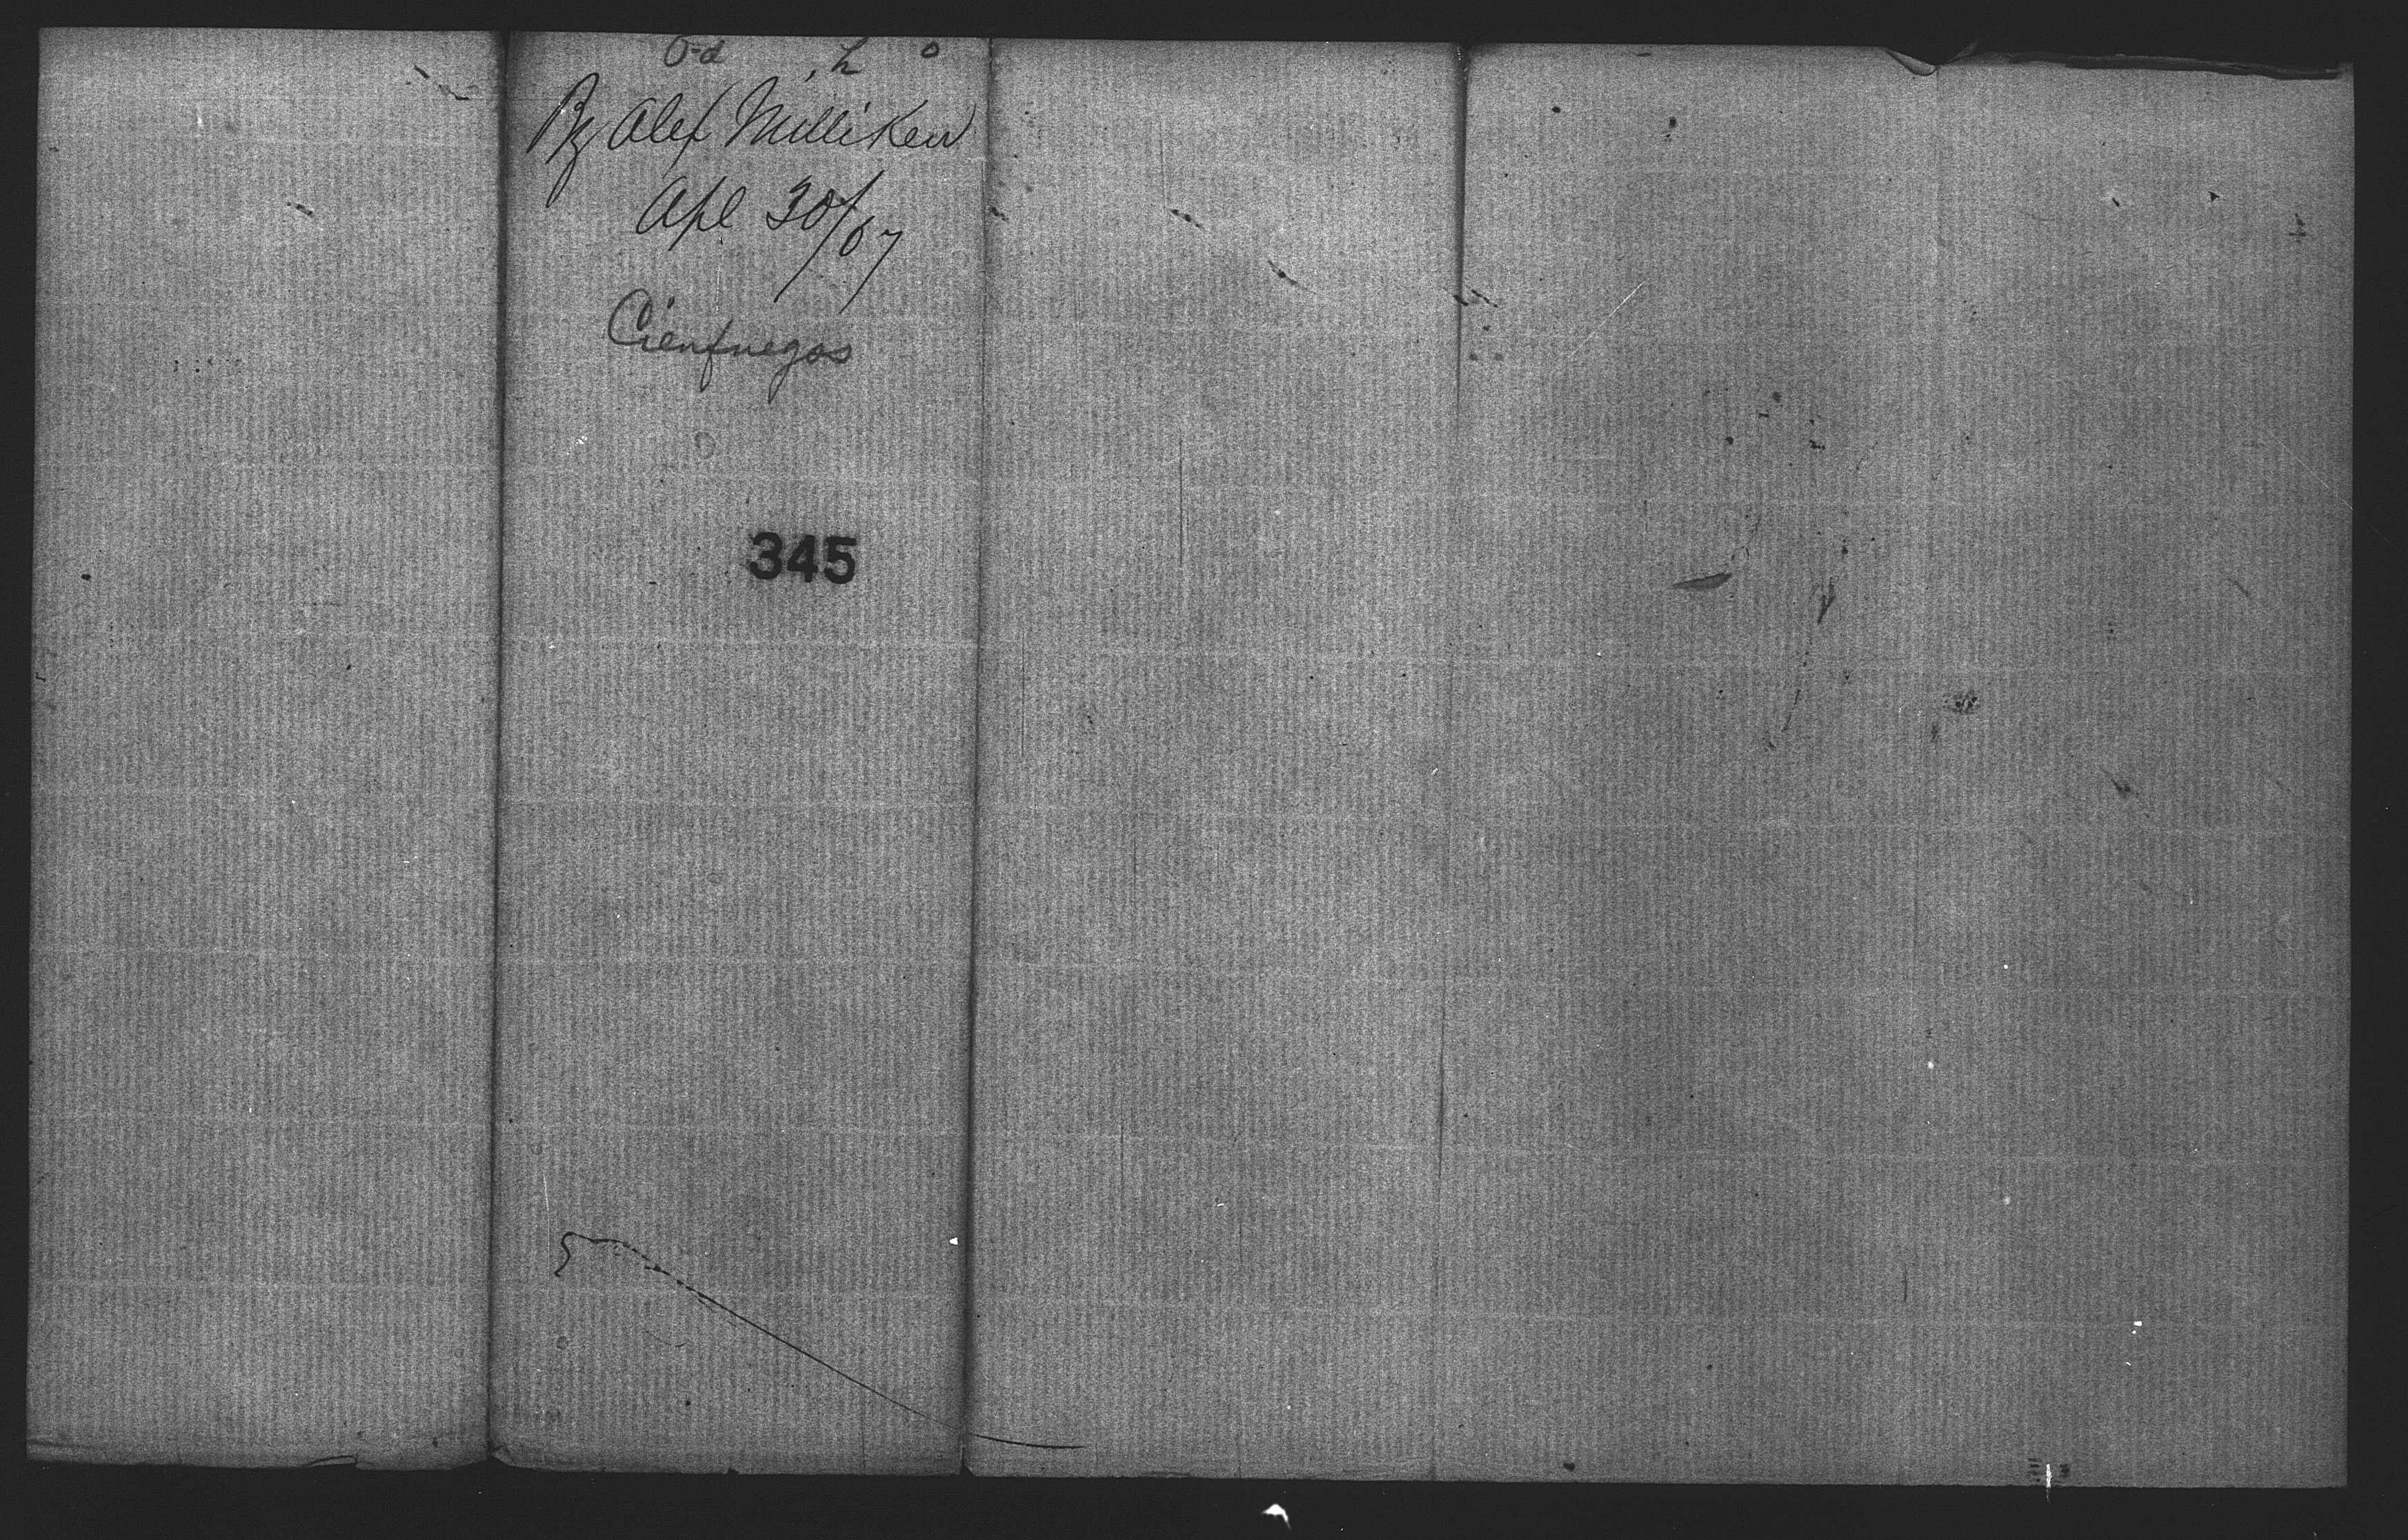 By Alex Milliken
Apl 30/67
Cienfuegos
345